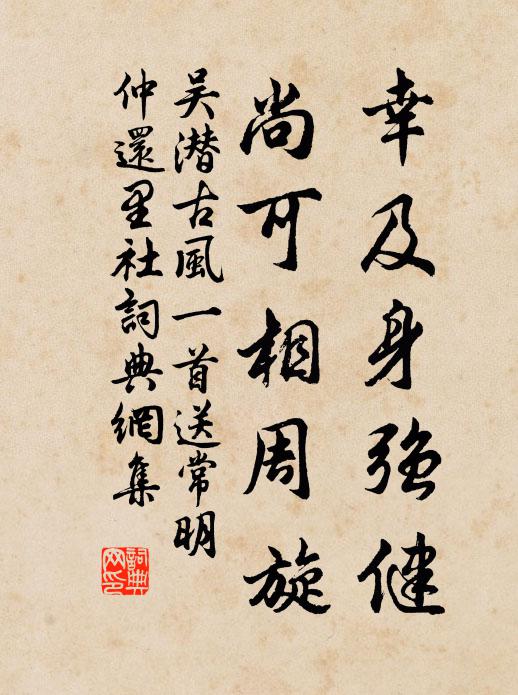 幸及身強健
尚可相周旋
吴潛古風一首送常明
仲還里社詞典網集
詞典
网印